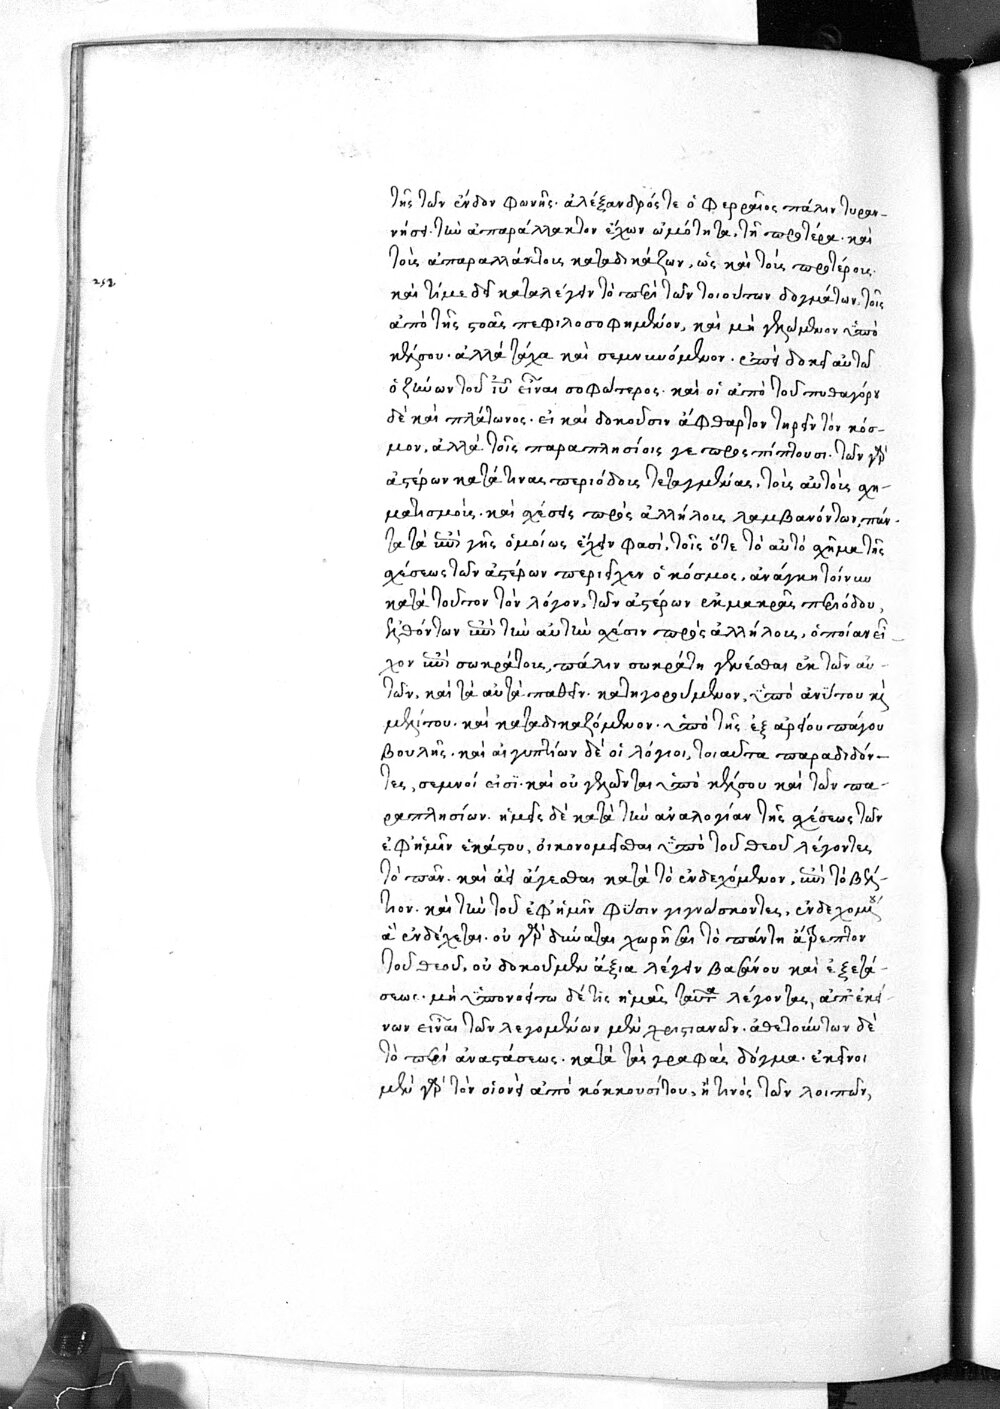 τῆς τῶν ἔνδον φωνῆς. ἀλέξανδρός τε ὁ φερραῖος πάλιν τυραν-
νήσει. τὴν ἀπαράλλακτον ἔχων ὠμότητα, τῆ προτέρα. καὶ
τοὺς ἀπαραλλάκτους καταδικάζων, ὡς καὶ τοὺς προτέρους.
252
καὶ τί με δεῖ καταλέγειν τὸ περὶ τῶν τοιούτων δογμάτων, τοῖς
ἀπὸ τῆς στοᾶς πεφιλοσοφημένον, καὶ μὴ γελώμενον ὑπὸ
κέλσου. ἀλλὰ τάχα καὶ σεμνυνόμενον. ἐπεὶ δοκεῖ αὐτῶ
ὁ ζήνων τοῦ ἰῦ εἶναι σοφώτερος. καὶ οἱ ἀπὸ τοῦ πυθαγόρου
δὲ καὶ πλάτωνος. εἰ καὶ δοκοῦσιν ἄφθαρτον τηρεῖν τὸν κόσ-
μον, ἀλλὰ τοῖς παραπλησίοις γε προσπίπτουσι. τῶν γὰρ
ἀστέρων κατά τινας περιόδους τεταγμένας, τοὺς αὐτοὺς σχη-
ματισμοὺς. καὶ σχέσεις πρὸς ἀλλήλους λαμβανόντων, πάν-
τα τὰ ἐπὶ γῆς ὁμοίως ἔχειν φασὶ, τοῖς ὅτε τὸ αὐτὸ σχῆμα τῆς
σχέσεως τῶν ἀστέρων περιεῖχεν ὁ κόσμος, ἀνάγκη τοίνυν
κατὰ τοῦτον τὸν λόγον, τῶν ἀστέρων ἐκ μακρᾶς περιόδου,
ἐλθόντων ἐπὶ τὴν αὐτὴν σχέσιν πρὸς ἀλλήλους, ὁποίαν εἶ-
χον ἐπὶ σωκράτους, πάλιν σωκράτη γενέσθαι ἐκ τῶν αὐ-
τῶν, καὶ τὰ αὐτὰ παθεῖν. κατηγορούμενον, ὑπὸ ἀνύτου καὶ
μελίτου. καὶ καταδικαζόμενον. ὑπὸ τῆς ἐξ ἀρείου πάγου
βουλῆς. καὶ αἰγυπτίων δὲ οἱ λόγιοι, τοιαῦτα παραδιδόν-
τες, σεμνοί εἰσϊ. καὶ οὐ γελῶνται ὑπὸ κέλσου καὶ τῶν πα-
ραπλησίων. ἡμεῖς δὲ κατὰ τὴν ἀναλογίαν τῆς σχέσεως τῶν
ἐφ' ἡμῖν ἑκάστου, οἰκονομεῖσθαι ὑπὸ τοῦ θεοῦ λέγοντες
τὸ πᾶν. καὶ ἀεὶ ἄγεσθαι κατὰ τὸ ἐνδεχόμενον, ἐπὶ τὸ βέλ-
τιον. καὶ τὴν τοῦ ἐφ' ἡμῖν φύσιν γιγνώσκοντες, ἐνδεχομέν
ἃ ἐνδέχεται. οὐ γὰρ δύναται χωρῆσαι τὸ πάντη ἄτρεπτον
τοῦ θεοῦ, οὐ δοκοῦμεν ἄξια λέγειν βασάνου καὶ ἐξετά-
σεως. μὴ ὑπονοείτω δέ τις ἡμᾶς ταῦτα λέγοντας, ἀπ' ἐκεί-
νων εἶναι τῶν λεγομένων μὲν χριστιανῶν. ἀθετούντων δὲ
τὸ περὶ ἀναστάσεως. κατὰ τὰς γραφὰς δόγμα. ἐκεῖνοι
μὲν γὰρ τὸν οἱονεὶ ἀπὸ κόκκου σίτου, ἤ τινος τῶν λοιπῶν,